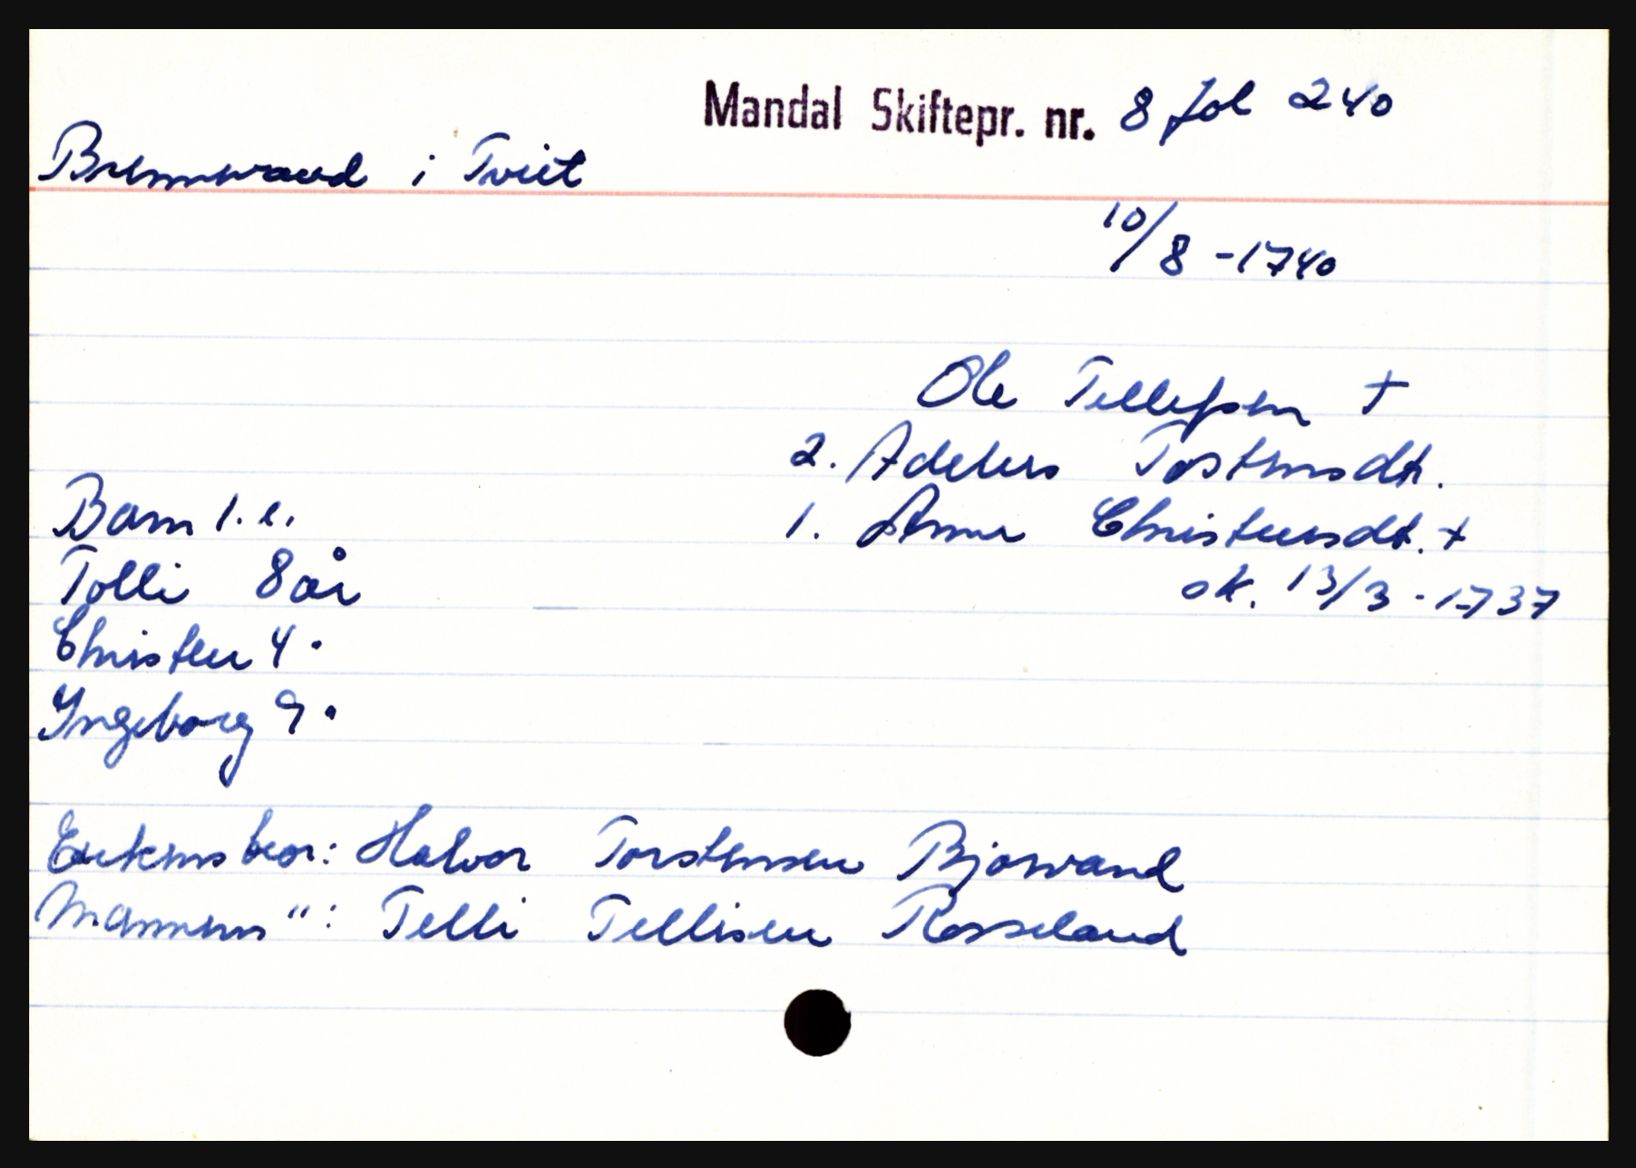 Mandal Skiftepr. nr. 8 fol 240
Brennwand i Tveit
10/8 -1740
Ole Tellefsen +
2. Adelus Tostensdt.
Barn 1. e. 1. Anne Christensdt. +
Tolli 8 år sk. 13/3 - 1737
Christen 4 "
Ingeborg 9 "
Enkens bror: Halvor Torstensen Bjorvand
Mannens " : Telli Tellisen Rosseland